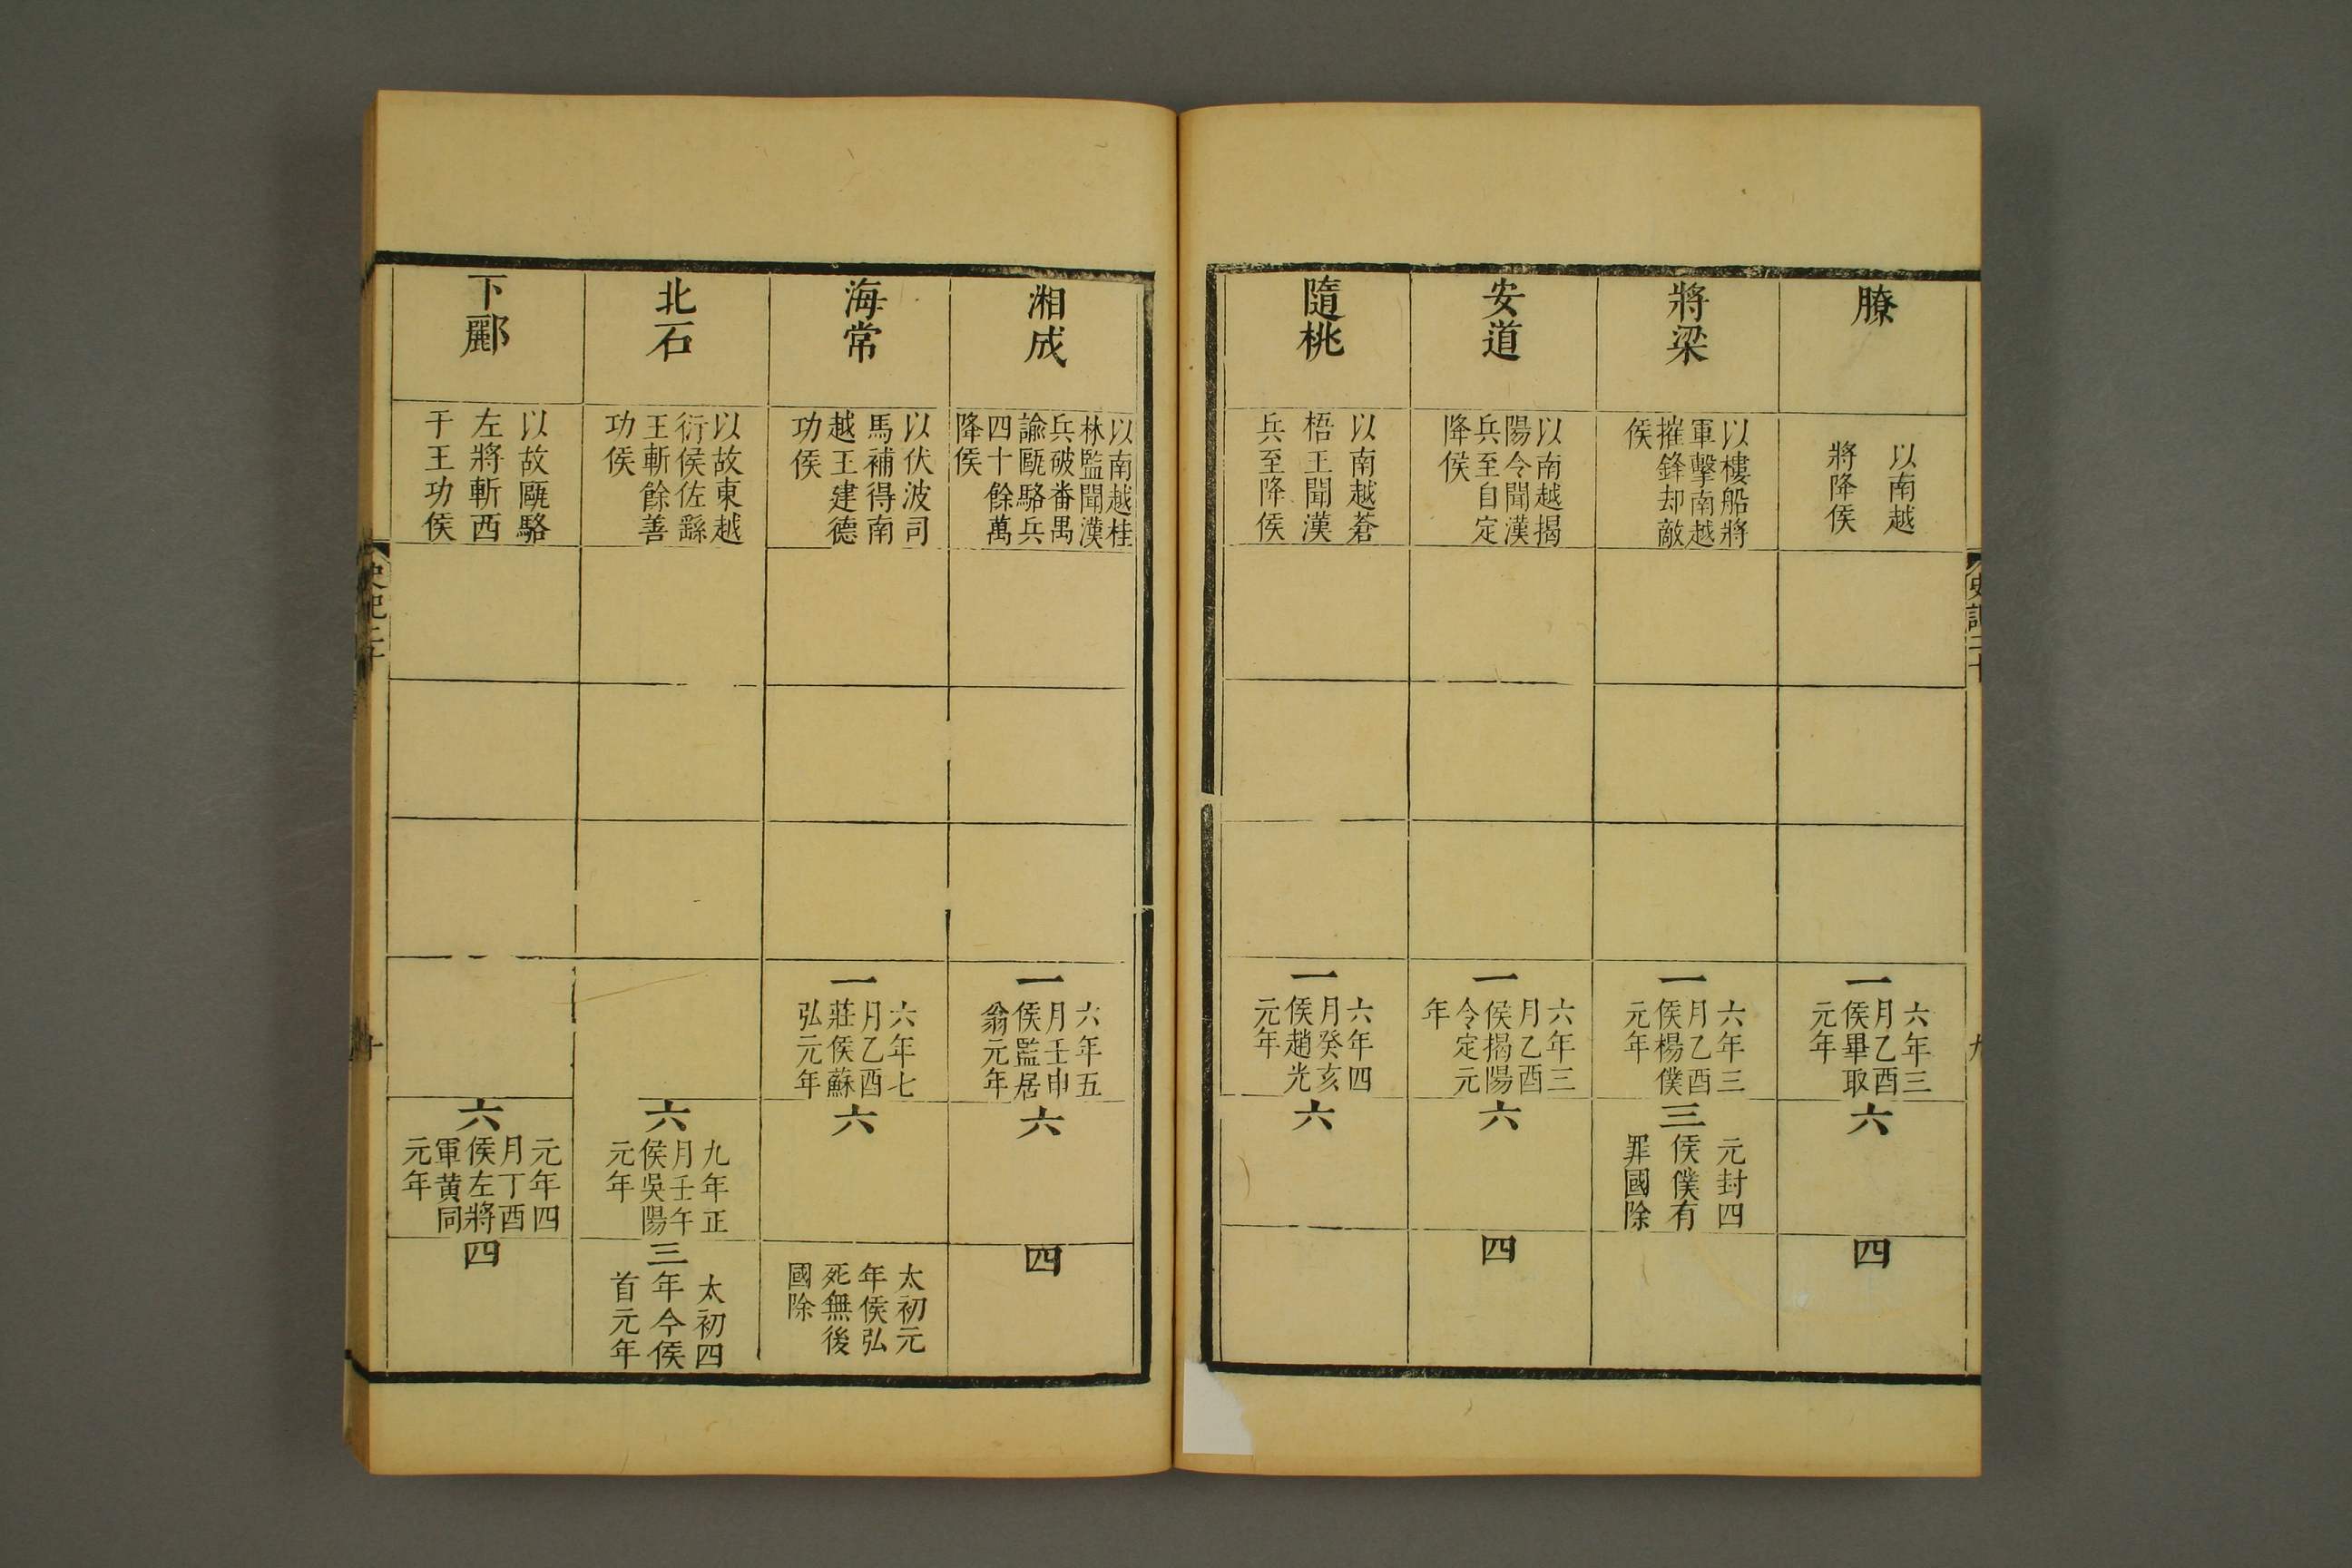 膫
以南越
將降侯
一
六年三
月乙酉
侯畢取
元年
六
四
將梁
以樓船將
軍擊南越
摧鋒却敵
侯
一
六年三
月乙酉
侯楊僕
元年
三
元封四
侯僕有
罪國除
安道
以南越揭
陽令聞漢
兵至自定
降侯
一
六年三
月乙酉
侯揭陽
令定元
年
六
四
隨桃
以南越蒼
梧王聞漢
兵至降侯
一
六年四
月癸亥
侯趙光
元年
六
湘成
以南越桂
林監聞漢
兵破番禺
諭甌駱兵
四十餘萬
降侯
一
六年五
月壬申
侯監居
翁元年
六
四
海常
以伏波司
馬補得南
越王建德
功侯
一
六年七
月乙酉
莊侯蘇
弘元年
六
太初元
年侯弘
死無後
國除
北石
以故東越
衍侯佐繇
王斬餘善
功侯
六
九年正
月壬午
侯吳陽
元年
三
太初四
年今侯
首元年
下酈
以故甌駱
左將斬西
于王功侯
六
元年四
月丁酉
侯左將
軍黃同
元年
四
史記二十